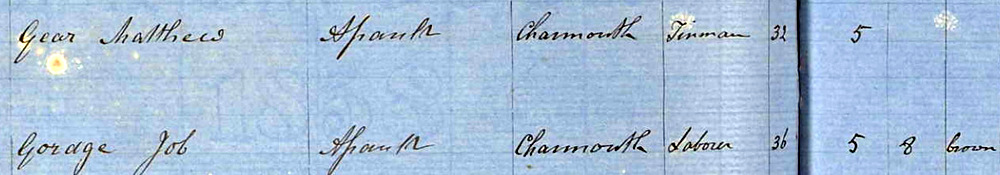 Gear Matthew Assault Charmouth Tinman 32 5
Gordge Job Assault Charmouth Laborer 36 5 8 brown